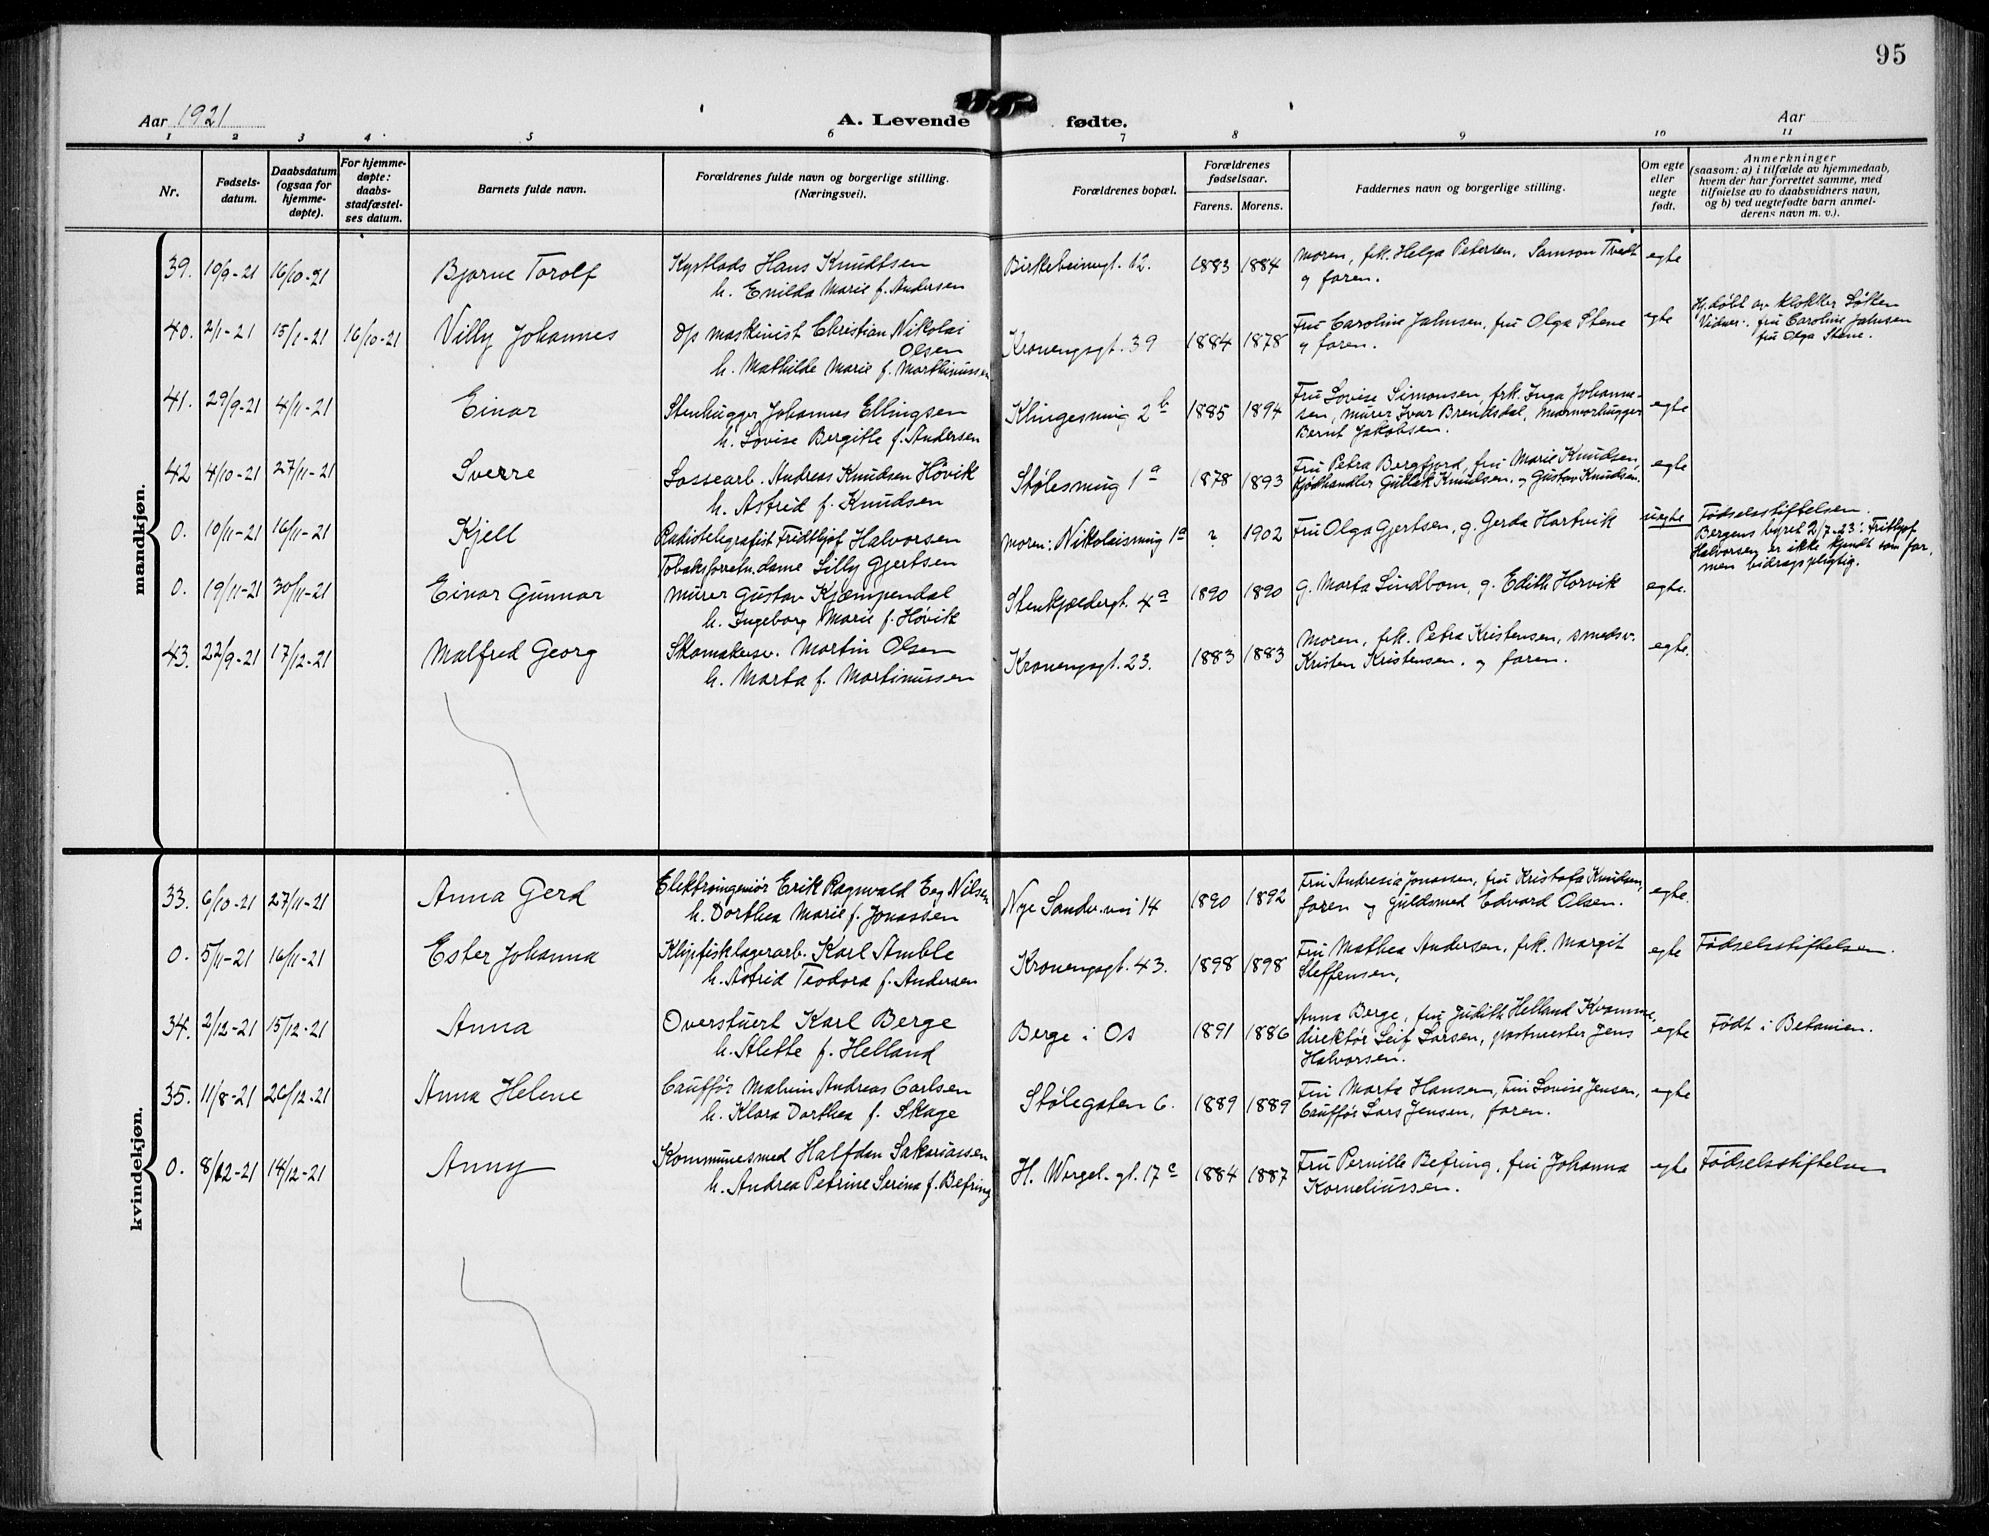 95
Aar 1921
A. Levende fødte.
Aar
1 2 3 4 5 6 7 8 9 10 11
Nr.
Fødsels-
datum.
Daabsdatum
(ogsaa for
hjemme-
døpte).
For hjemme-
døpte:
daabs-
stadfæstel-
ses datum.
Barnets fulde navn.
Forældrenes fulde navn og borgerlige stilling.
(Næringsvei).
Forældrenes bopæl.
Forældrenes
fødselsaar.
Farens. Morens.
Faddernes navn og borgerlige stilling.
Om egte
eller
uegte
født.
Anmerkninger
(saasom: a) i tilfælde av hjemmedaab,
hvem der har forrettet samme, med
tilføielse av to daabsvidners navn,
og b) ved uegtefødte barn anmel-
derens navn m. v.).
mandkjøn.
39. 19/9-21 16/10-21 Bjarne Torolf
Kystlods Hans Knudtsen
h. Enilda Marie f. Andersen
Birkebeinergt. 12. 1883 1884
Moren, frk. Helga Petersen, Samson Tvedt
og faren.
egte
40. 2/1-21 15/1-21 16/10-21 Villy Johannes
D/s maskinist Christian Nikolai
Olsen
h. Mathilde Marie f. Marthinussen
Kronengsgt. 39 1884 1878
Fru Caroline Jahnsen, fru Olga Stene
og faren.
egte
Hj.døbt av klokker Løtten
Vidner: fru Caroline Jahnsen
fru Olga Stene.
41. 29/9-21 4/11-21 Einar
Stenhugger Johannes Ellingsen
h. Lovise Bergitte f. Andersen
Klingesmug 2 b 1885 1894
Fru Lovise Simonsen, frk. Inga Johanne-
sen, murer Ivar Brendsdal, Marmorhugger
Bernt Jakobsen.
egte
42 4/10-21 27/11-21 Sverre
Lossearb. Andreas Knudsen Høvik
h. Astrid f. Knudsen
Stølesmug 1 a 1878 1893
Fru Petra Bergfjord, fru Marie Knudsen,
Kjødhandler Gullak Knudsen, og Gustav Knudsen.
egte
0. 10/11-21 16/11-21 Kjell
Radiotelegrafist Fridthjof Halvorsen
Tobaksforretn.dame Lilly Gjertsen
moren: Nikolaismug 1 a ? 1902
Fru Olga Gjertsen, g. Gerda Hartvik
uegte
Fødselsstiftelsen.
Bergens byret 2/7-23: Frithjof
Halvorsen er ikke kjendt som far,
men bidragspligtig.
0. 19/11-21 30/11-21 Einar Gunnar
Murer Gustav Kjæmpendal
h. Ingeborg Marie f. Høvik
Stenkjeldergt. 4 a 1890 1890
g. Marta Lindbom, g. Edith Horvik
egte.
43. 22/9-21 17/12-21 Malfred Georg
Skomakersv. Martin Olsen
h. Marta f. Martinussen
Kronengsgt. 23. 1883 1883
Moren, frk. Petra Kristensen, smedsv.
Kristen Kristensen, og faren.
egte.
kvindekjøn.
33. 6/10-21 27/11-21 Anna Gerd
Elektroingeniør Erik Ragnvald Eeg Nilsen
h. Dorthea Marie f. Jonassen
Nye Sandv.vei 14 1890 1892
Fru Andresia Jonassen, fru Kristofa Knudsen,
faren og Guldsmed Edvard Olsen.
egte.
0. 5/11-21 16/11-21 Ester Johanna
Klipfisklagerarb. Karl Amble
h. Astrid Teodora f. Andersen
Kronengsgt. 43. 1898 1898
Fru Mathea Andersen, frk. Margit
Steffensen,
egte Fødselsstiftelsen.
34. 2/12-21 15/12-21 Anna
Overstuert Karl Berge
h. Alette f. Helland
Berge i Os 1891 1886
Anna Berge, fru Judith Helland Kvamme,
direktør Leif Larsen, postmester Jens
Halvorsen.
egte Født i Betanien.
35. 11/8-21 26/12-21 Anna Helene
Cauffør Malvin Andreas Carlsen
h. Klara Dorthea f. Skage
Stølegaten 6. 1889 1889
Fru Marta Hansen, Fru Lovise Jensen,
Cauffør Lars Jensen, faren.
egte
0. 8/12-21 14/12-21 Anny
Kommunesmed Halfdan Sakariassen
h. Andrea Petrine Serina f. Befring
H. Wergel. gt. 17 c 1884 1887
Fru Pernille Befring, fru Johanna
Korneliussen.
egte Fødselsstiftelsen